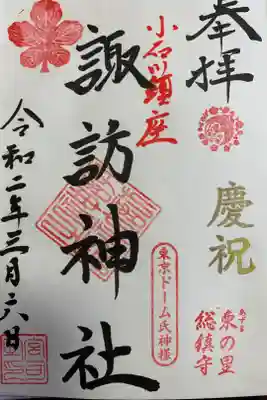 奉拝
慶祝
あずま
東の里
総鎮守
小石川鎮座
諏訪神社
東京ドーム氏神様
令和二年三月六日